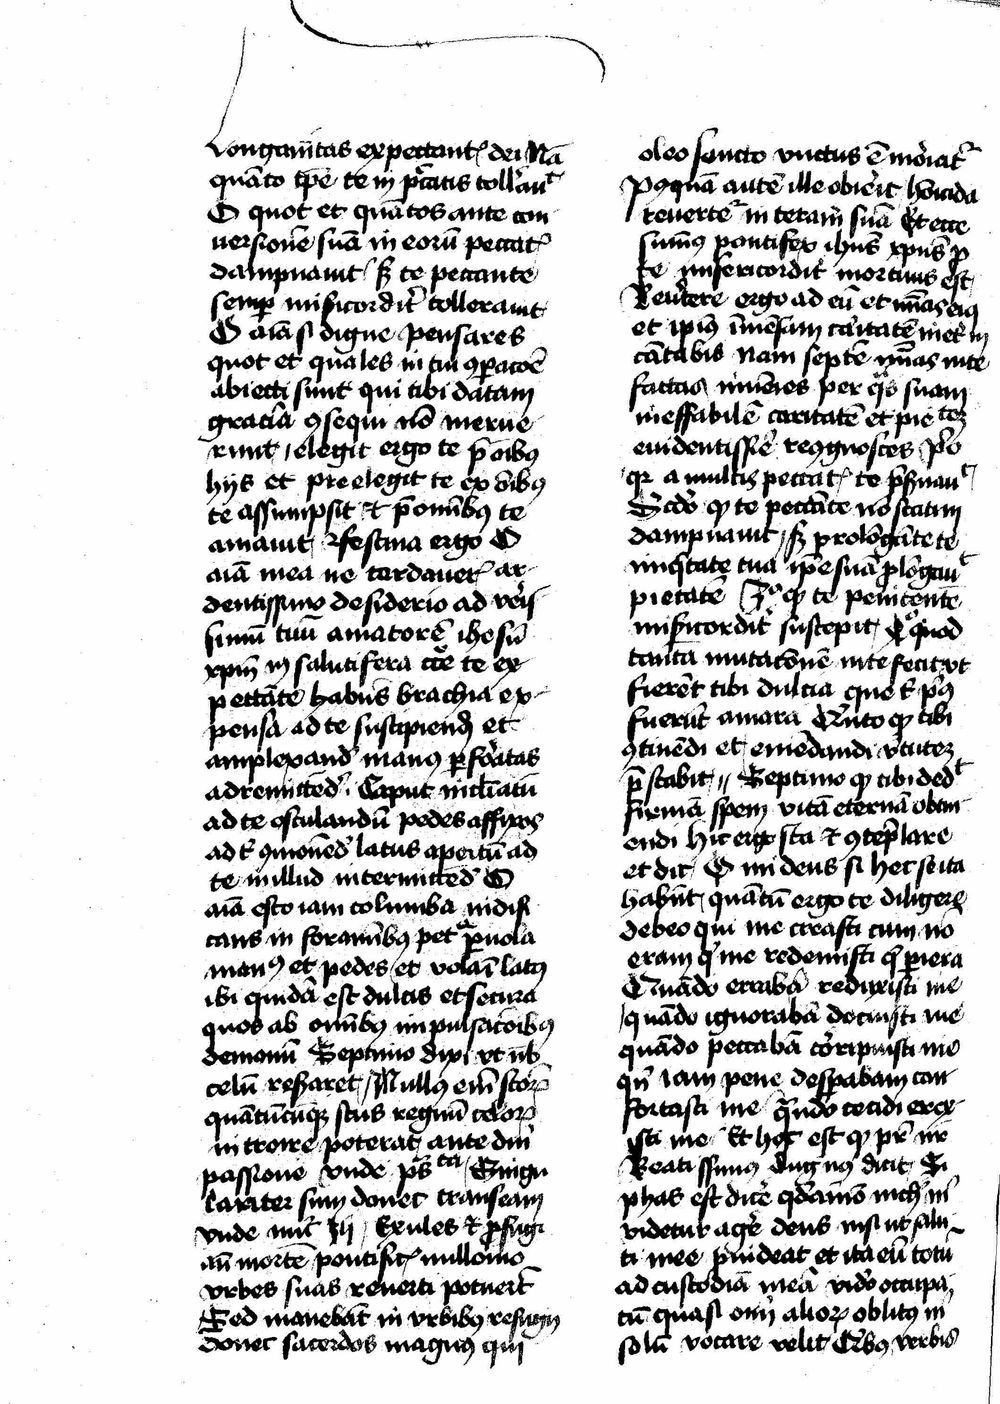 Longanitas expectant dei Nā
quāto tpē te in pctatis tollaut
O quot et quātos ante con
uersionē suā in eorū peccat
dampnauit / sꝫ te peccante
semp misicordit tollerauit
O aīā si digne pensares
quot et quales in tui ꝯpacōe
abiecti sunt qui tibi datam
graciā ꝯsequi nō merue
runt / elegit ergo te p̄ oībꝰ
hijs et preelegit te ex oībꝰ
te assumpsit et p̄ omībꝰ te
amauit / festina ergo O
aīā mea ne tardauer ar
dentissimo desiderio ad veris
simū tuū amatorē ihesū
xpm in salutifera te ex
pectāte habūs brachia ex
pensa ad te suscipiend et
amplexand manꝰ pforatas
ad remittēd Caput inclīatū
ad te osculandū pedes affixos
ad ꝯmonēd latus apertū ad
te in illud intermittēd O
aīā esto iam columba nidifi
cans in foramībꝰ pet puola
manꝰ et pedes et latꝰ
ibi quidā est dulcis et secura
quos ab omībꝰ inpulsacōibꝰ
demonū Septimo dixi vt nb
celū resꝑaret / Nullꝰ eīm scor
quātūcūqꝫ scūs regnū celor
introire poterat ante dnī
passione vnde ps Singu
lariter sum donec transeam
vnde Exules et pfugi
an mortē pontific nullomō
vrbes suas reuerti potuert
Sed manebāt in vrbibꝰ refugij
donec sacerdos magnꝰ qui
oleo sancto vnctus ē moriat
Pꝰquā autē ille obierit homicida
reuerte in terram suā Et ecce
sumꝰ pontifex ihūs xpūs p
te misericordit mortuus est
Reutere ergo ad eū et
et ipiꝰ īmēsam caritatē
cātabis Nam septē mīas in te
factas inuenies per qs suam
ineffabilē caritatē et pietez
euidentissīe recognosces Po
qr a multis peccat te pseruaut
Scdo qꝫ te peccāte nō statim
dampnauit / sꝫ prolōgāte te
iniqtate tua ipē suā plōgaut
pietatē 3o qꝫ te penitentē
misicordit suscepit / quod
tantā mutacōnē in te fecit vt
fierēt tibi dulcia que pꝰ
fuerūt amara Qinto qꝫ tibi
ꝯtinēdi et emēdandi vtutez
p̄stabit // Septimo qꝫ tibi dedt
firmā spem vitā eternā obtin
endi hic ergo sta et ꝯteplare
et dic O mi deus si hec se ita
habūt quātū ergo te diligere
debeo qui me creasti cum nō
eram q me redemisti q periera
Quādo errabā reduxisti me
quādo ignorabā docuisti me
quādo peccabā coripuisti me
qn iam pene despabam con
fortasti me quādo cecidi erex
isti me Et hoc est qꝫ pr nr
Beatissimus Augꝰ dicit Si
phas est dicē qdāmō nich mi
videtur agē deus nisi ut salu
ti mee puideat et ita eū totū
ad custodiā meā video occupa
tū quasi omī alior oblitꝰ m
solū vocare velit vrbis